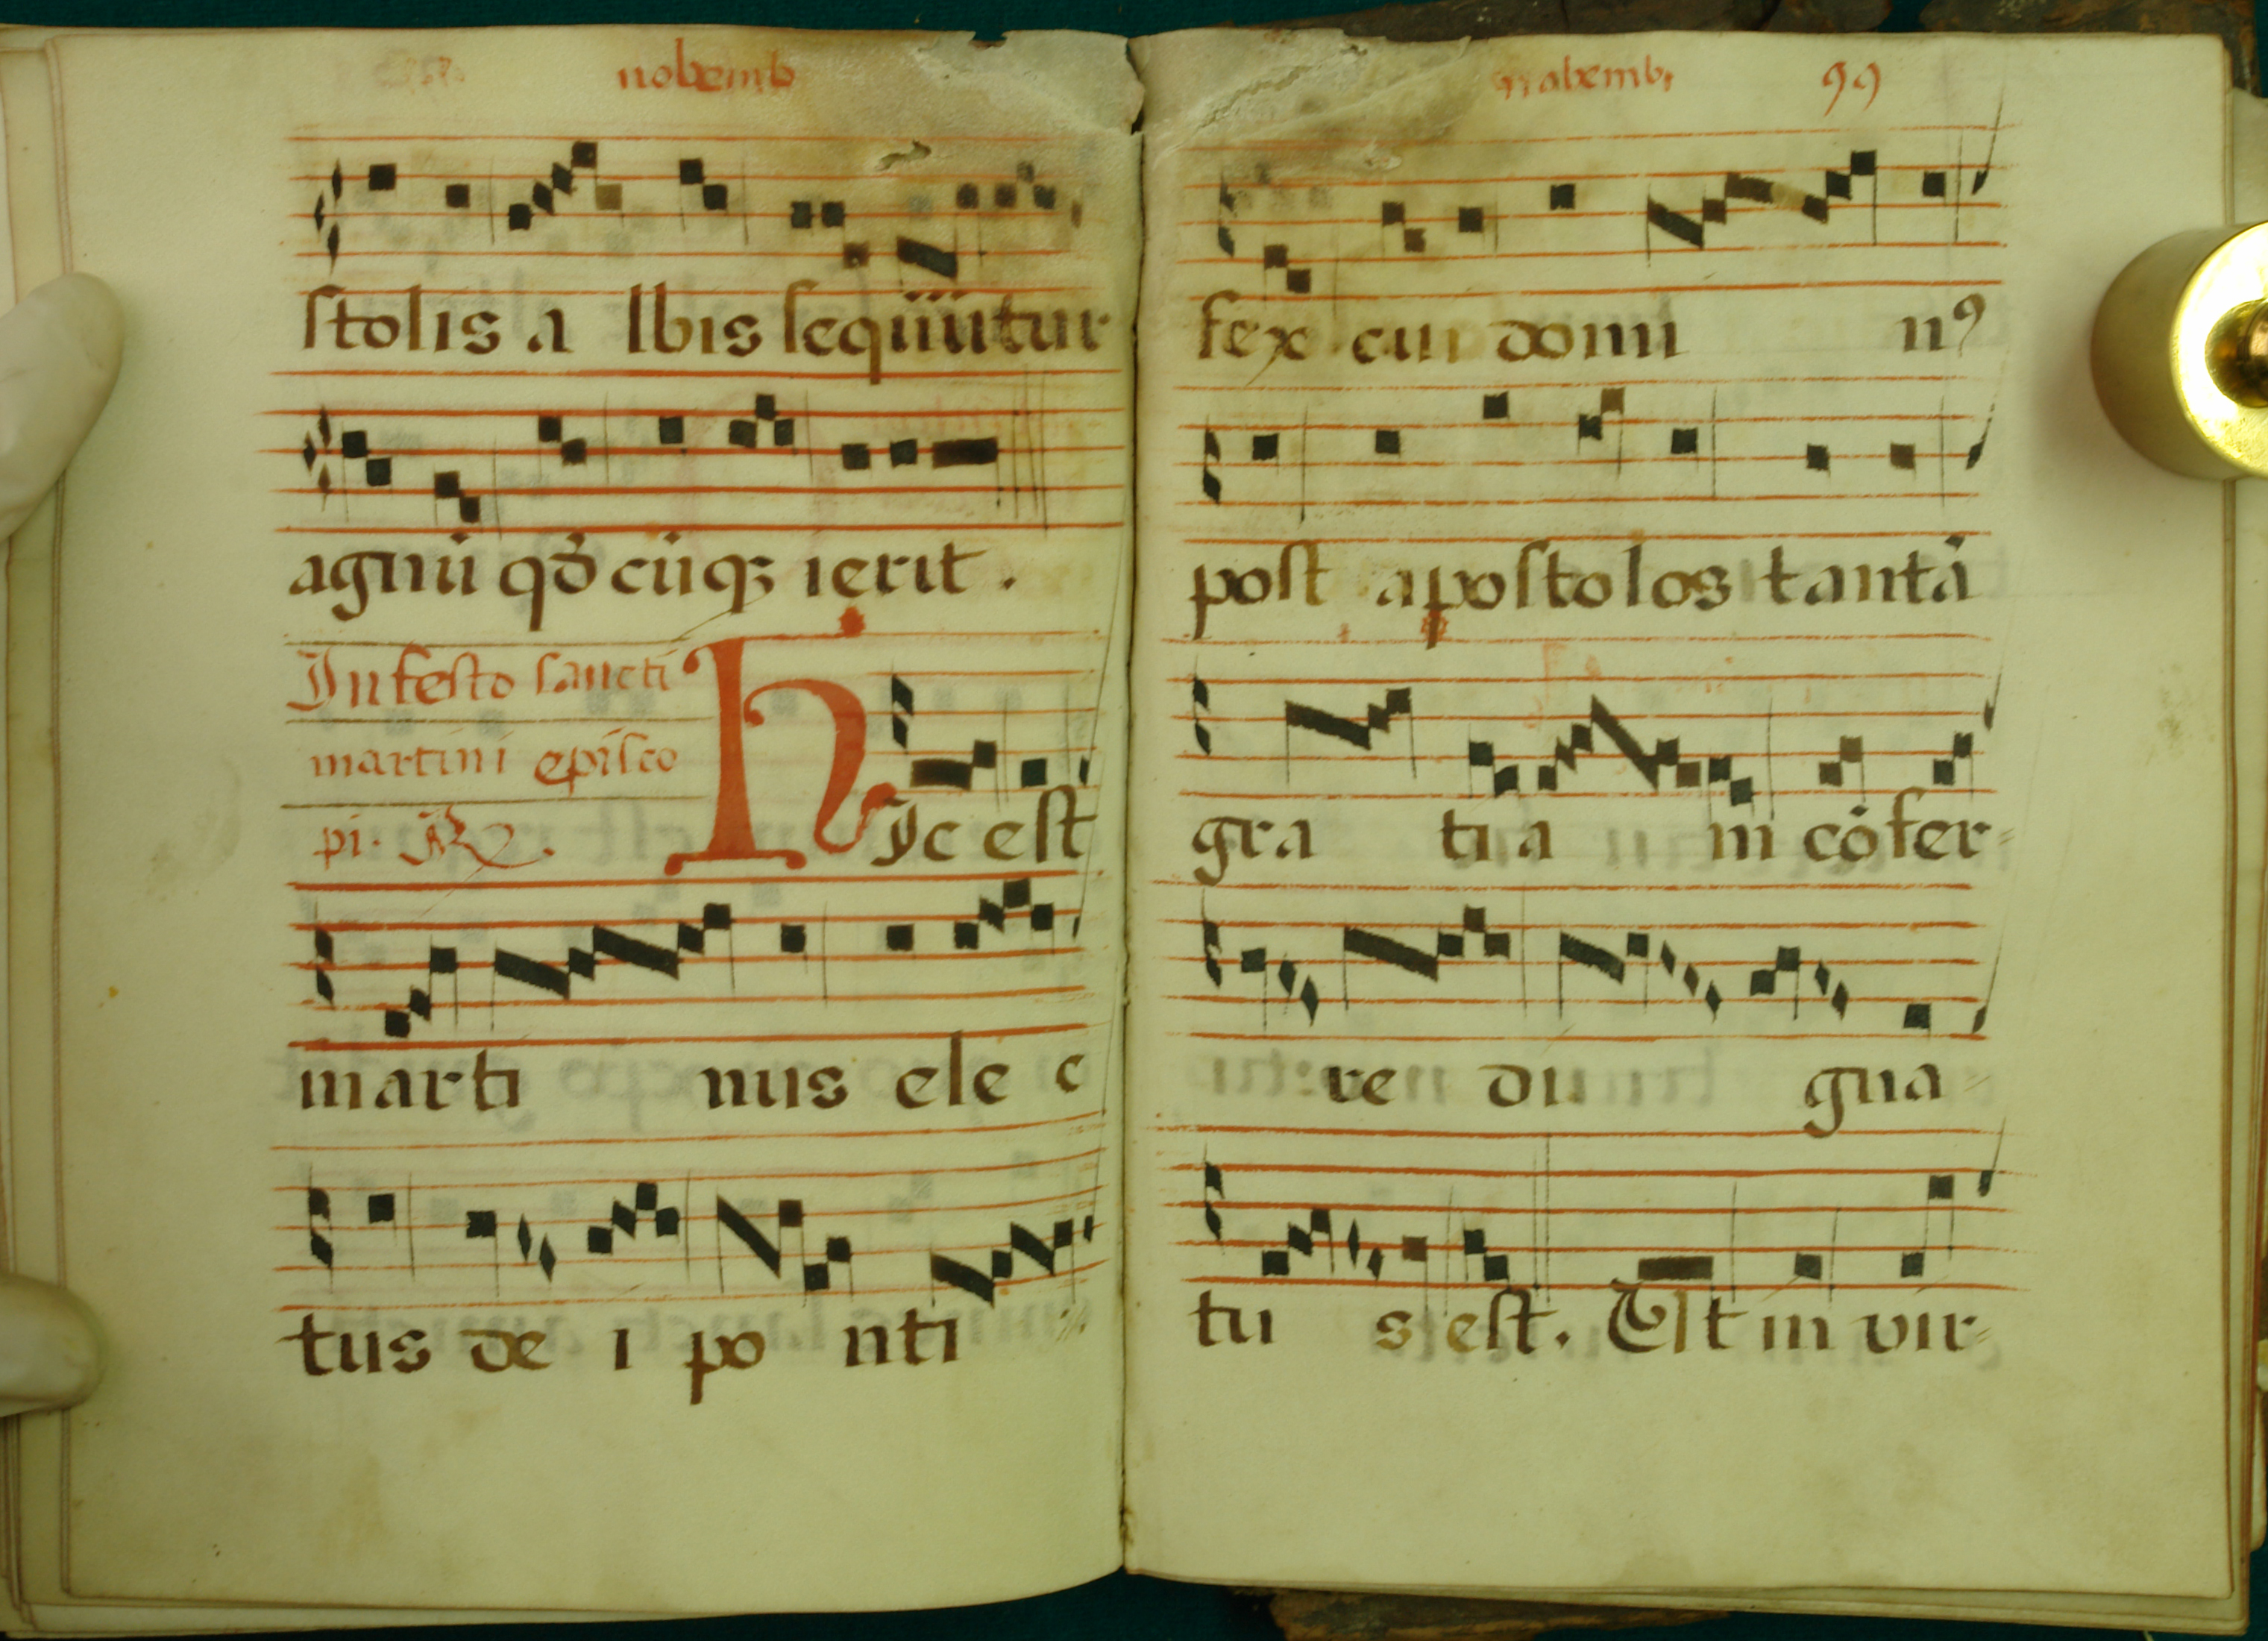 nobemb
stolis a lbis sequũtur
agnũ qđ cũqꝫ ierit.
In festo sancti
martini episco
pi. ℟.
Hic est
marti nus ele c
tus de i po nti
nabemb, 99
fex cui domi nꝰ
post apostolos tantã
gra ti a m cõfer-
re di gna-
tu s est. Est in vir-